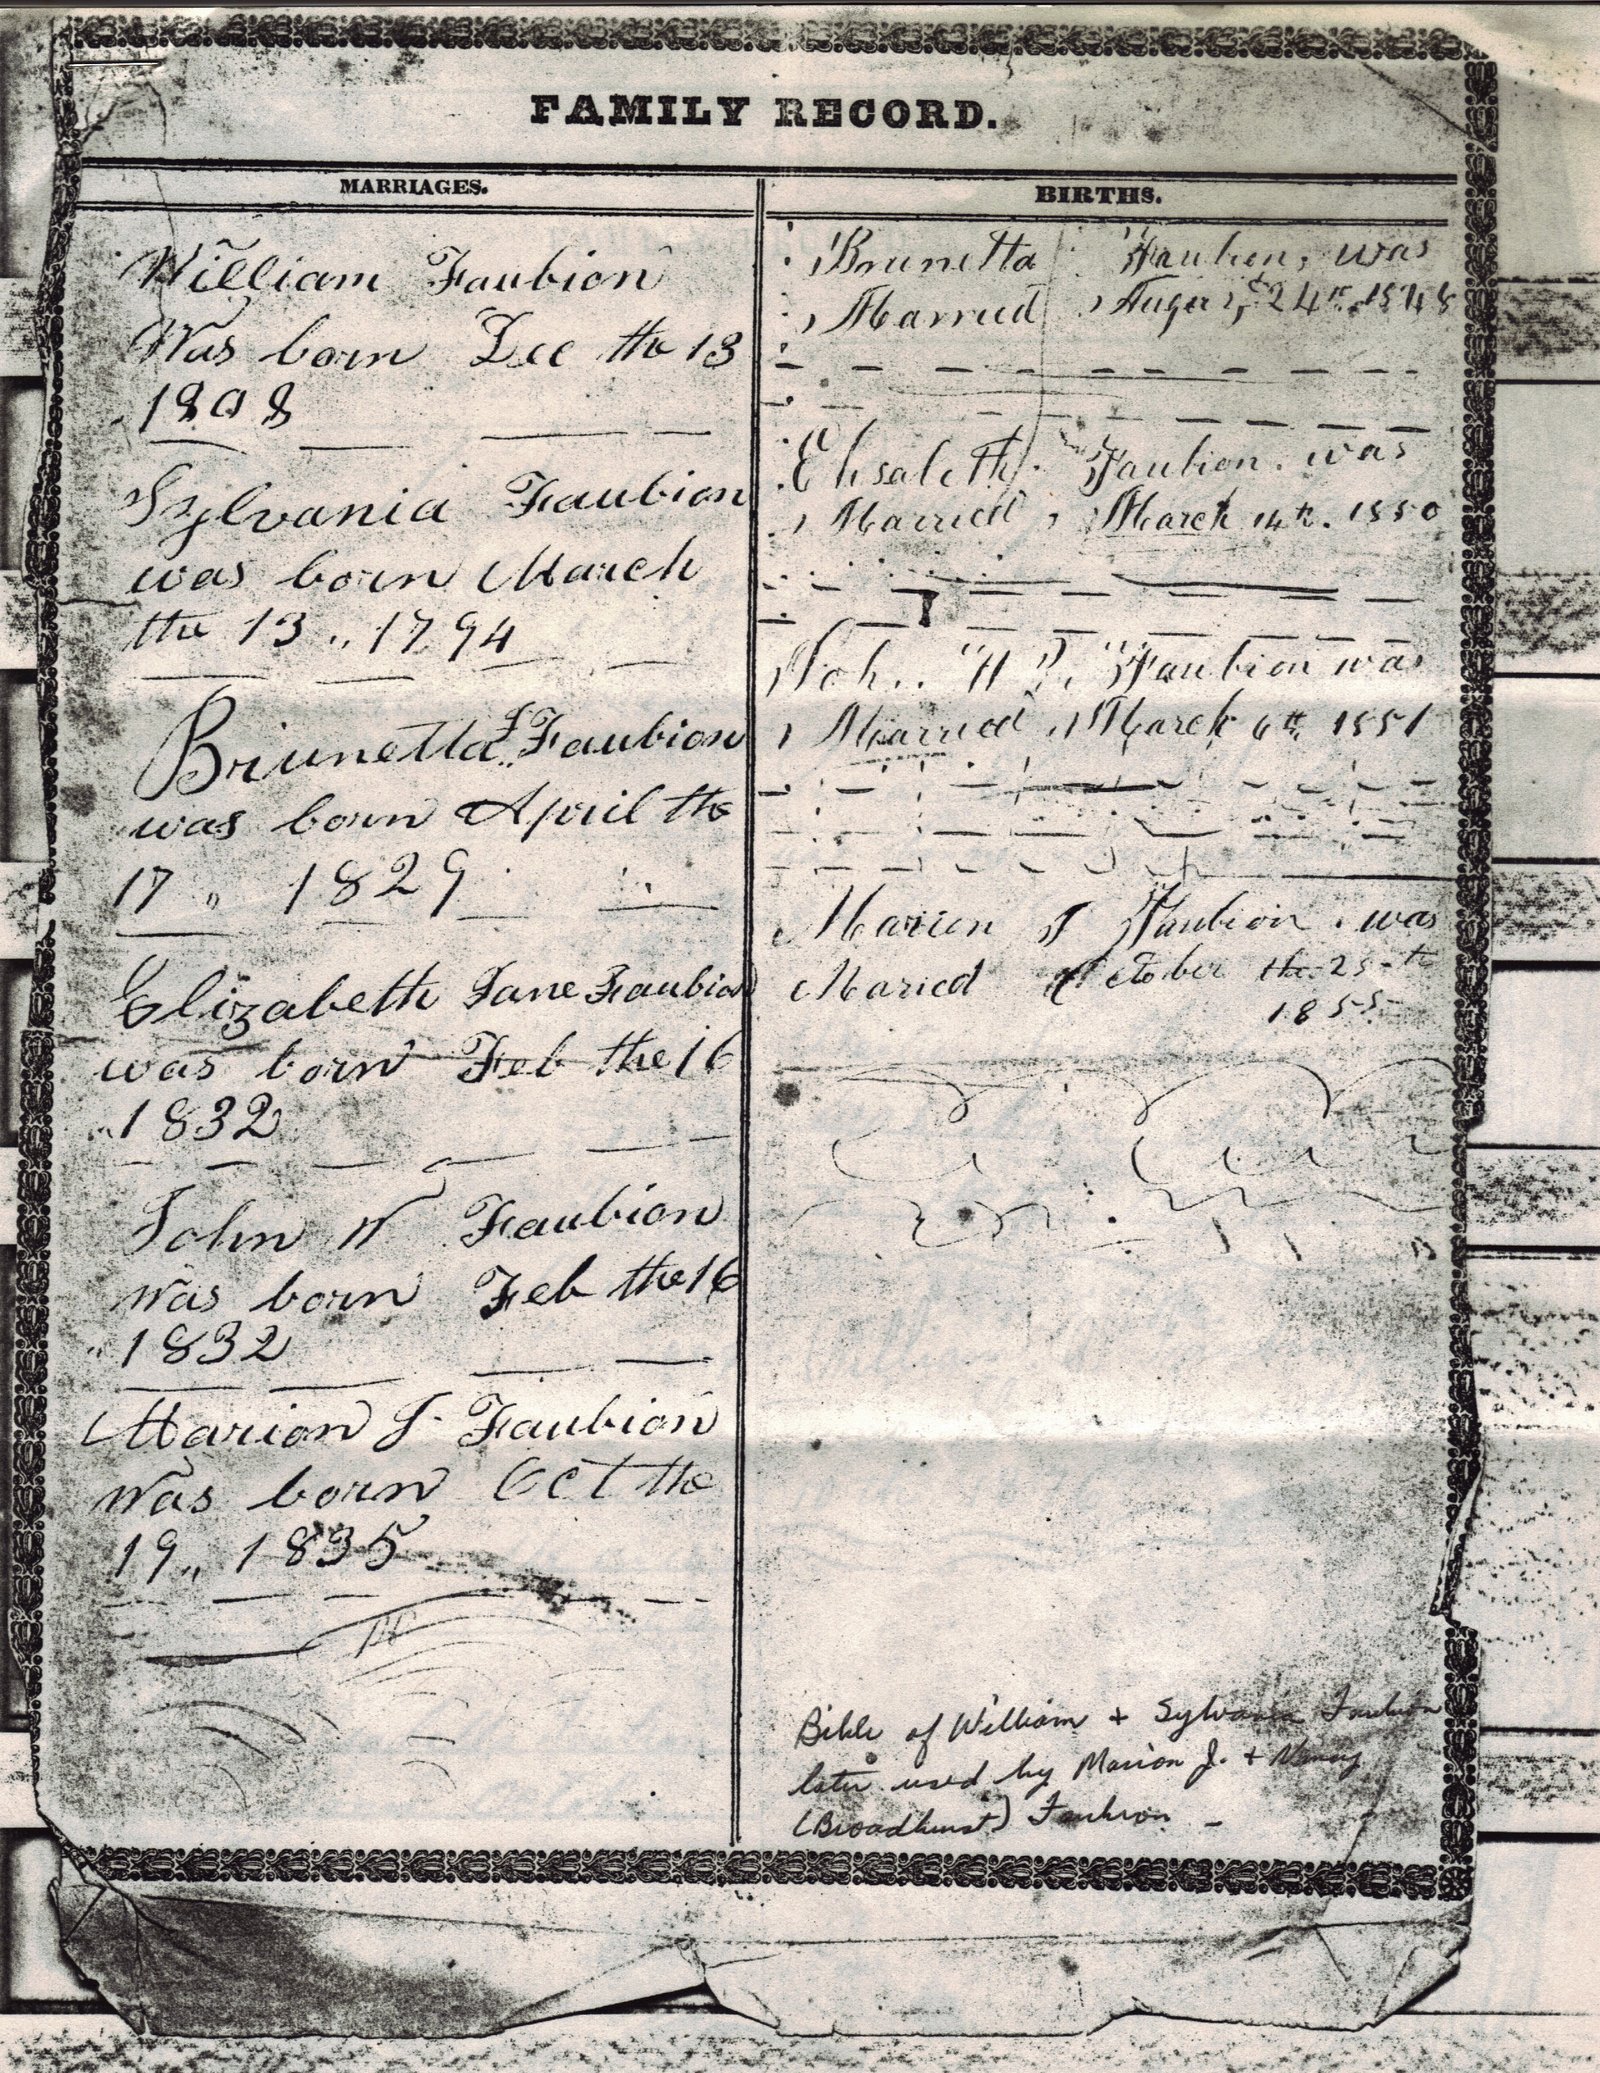 FAMILY RECORD.
MARRIAGES.
William Faubion
Was born Dec the 13
1808
Sylvania Faubion
was born March
the 13 ,, 1794
Brunetta Faubion
was born April the
17 ,, 1829
Elizabeth Jane Faubion
was born Feb the 16
1832
John W Faubion
Was born Feb the 16
1832
Marion J Faubion
Was born Oct the
19 ,, 1835
BIRTHS.
Brunetta Faubion, was
Married August, 24th. 1848
Elisabeth Faubion. was
Married, March 14th. 1850
John W. Faubion was
Married, March 6th, 1851
Marion J Faubion. was
Maried October the 25th
1855
Bible of William + Sylvania Faubion
later used by Marion J. + Nancy
(Broadhurst) Faubion -